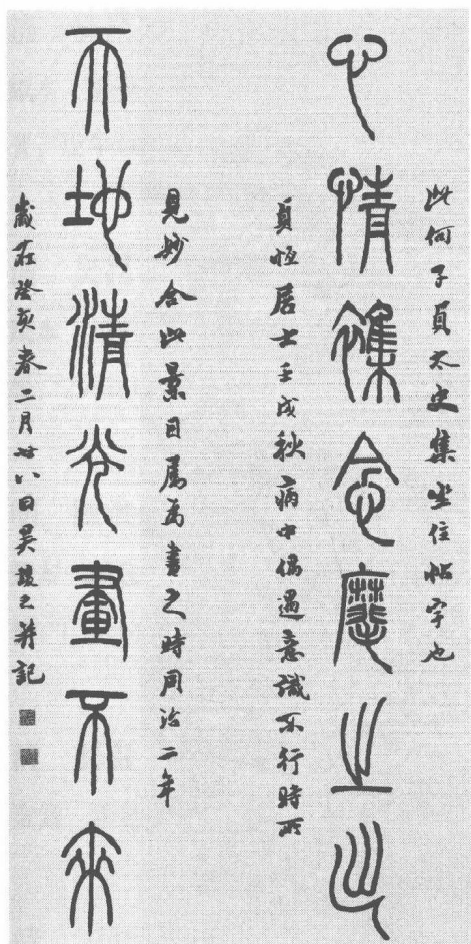 此何子貞太史集坐位帖字也
心情雜念
貞恆居士壬戌秋病中偶遇意識不行時所
見妙合此景因屬為書之時同治二年
天地清光畫不來
歲在癸亥春二月廿八日吳讓之并記